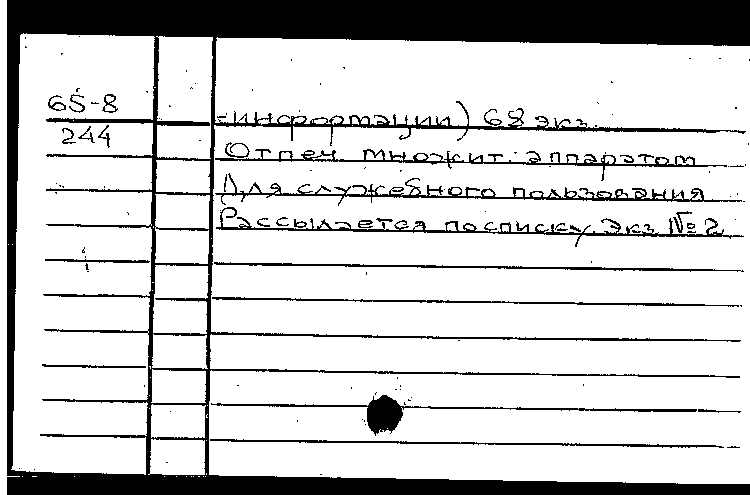 65-8
244
-информации) 68 экз.
Отпеч. множит. аппаратом
Для служебного пользования
Рассылается по списку. Экз №2